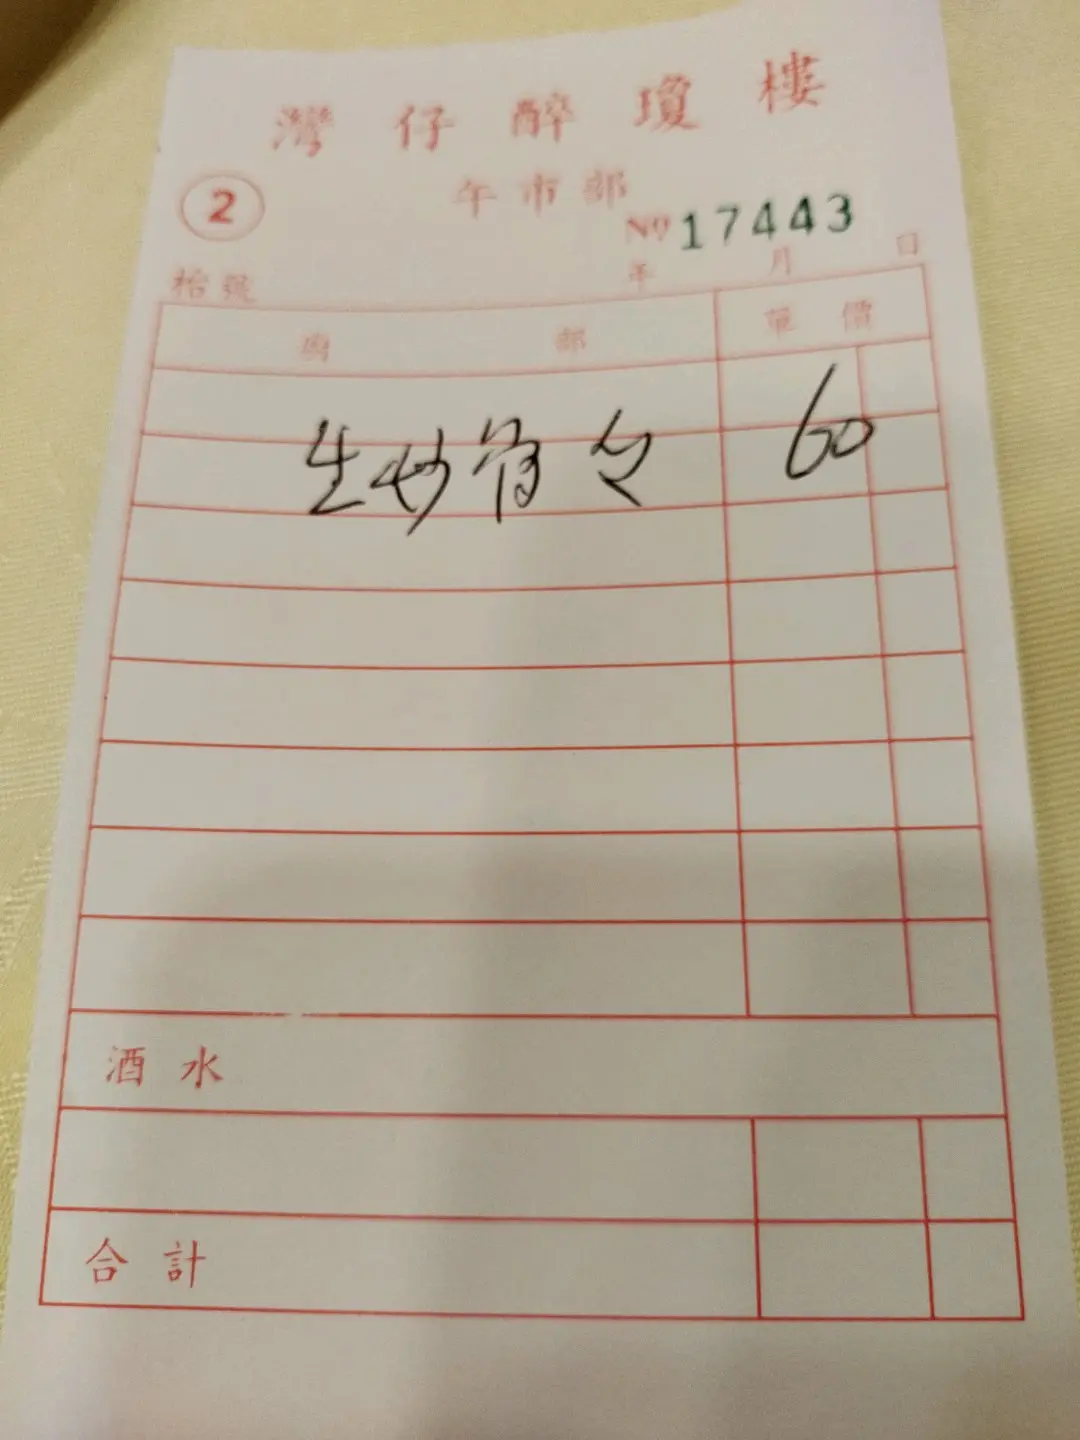 灣仔醉瓊樓
② 午市部
№ 17443
枱號 年 月 日
廚部 單價
生炒 60
酒水
合計